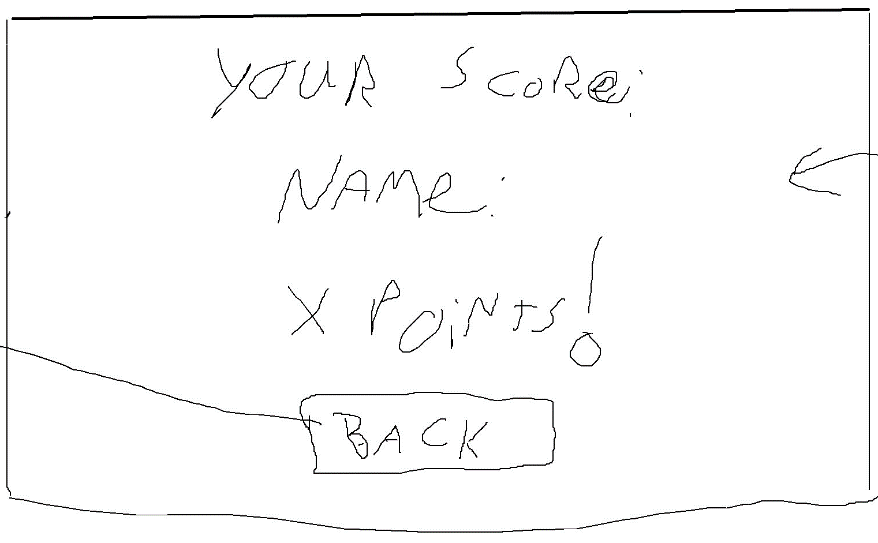 YOUR SCORe:
NAMe:
X POiNTS!
BACK